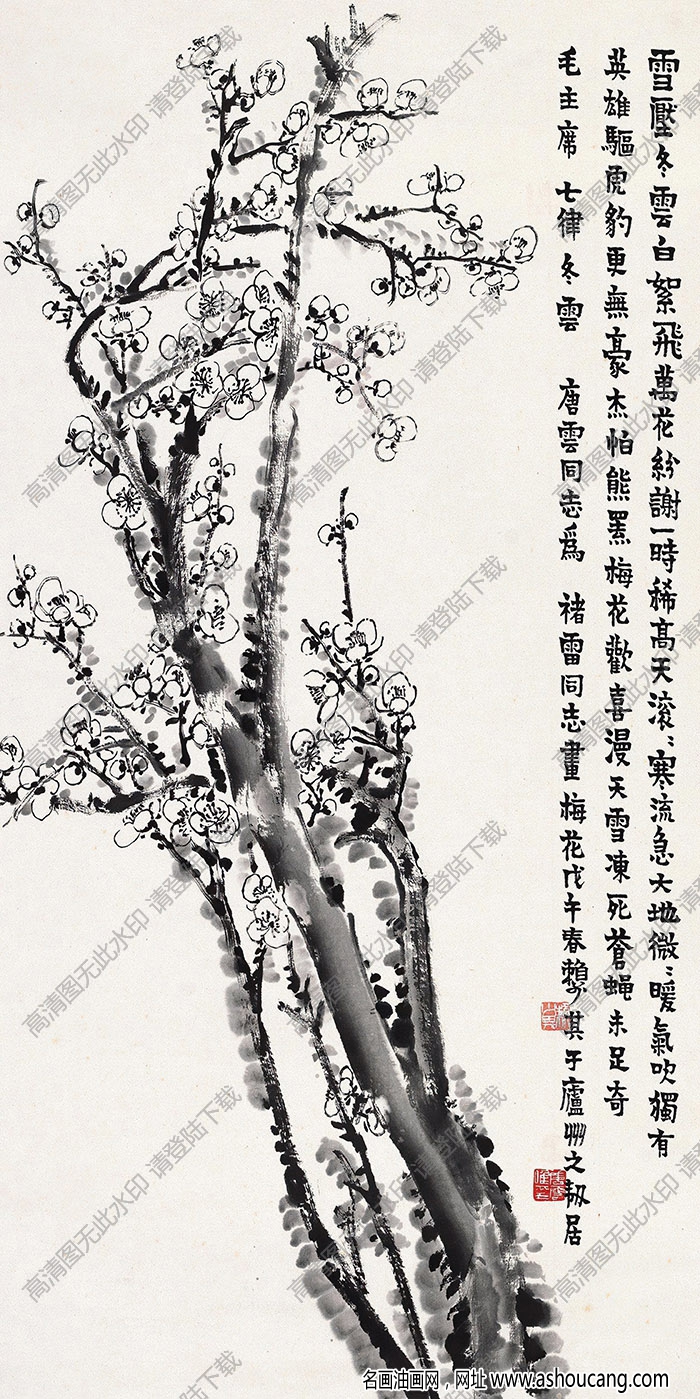 雪壓冬雲白絮飛萬花紛謝一時稀高天滚〻寒流急大地微〻暖氣吹獨有
英雄驅虎豹更無豪杰怕熊羆梅花歡喜漫天雪凍死蒼蝇未足奇
毛主席 七律冬雲 唐雲同志爲 褚雷同志畫梅花戊午春賴少其于廬州之
居
高清图无此水印 请登陆下载
名画油画网，网址 www.ashoucang.com